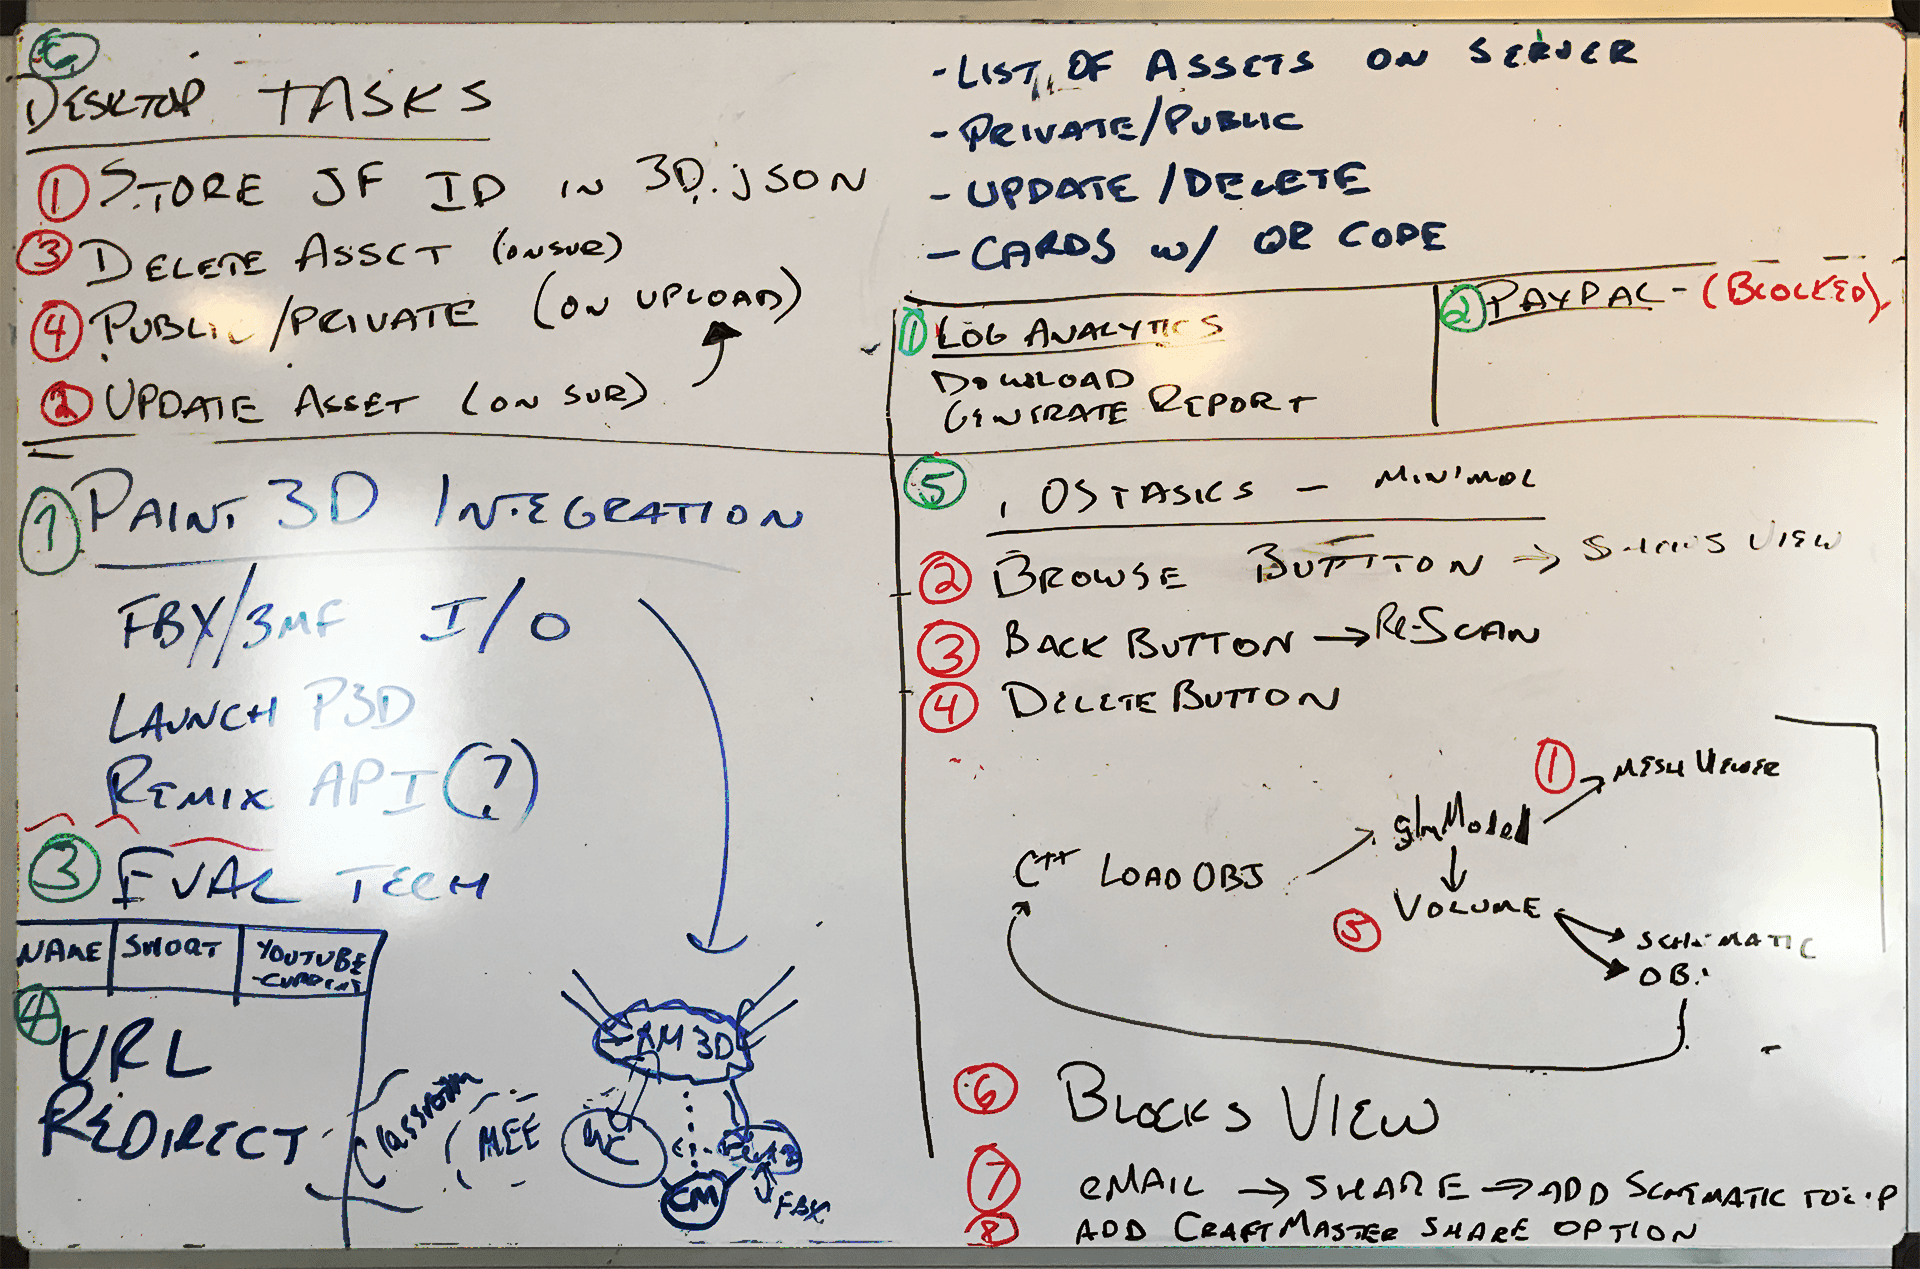 6
DESKTOP TASKS
① STORE JF ID IN 3D.JSON
③ DELETE ASSET (ON SVR)
④ PUBLIC/PRIVATE (ON UPLOAD)
② UPDATE ASSET (ON SVR)
- LIST OF ASSETS ON SERVER
- PRIVATE/PUBLIC
- UPDATE/DELETE
- CARDS W/ QR CODE
① LOG ANALYTICS
DOWNLOAD
GENERATE REPORT
② PAYPAL - (BLOCKED)
7 PAINT 3D INTEGRATION
FBX/3MF I/O
LAUNCH P3D
REMIX API (?)
③ EVAL TECH
NAME SHORT YOUTUBE
④ URL
REDIRECT
Classroom
MEE
3D
CM
FBX
⑤ iOS TASKS - MINIMAL
② BROWSE BUTTTON → VIEW
③ BACK BUTTON → RE-SCAN
④ DELETE BUTTON
① MESH VIEWER
glmModel
C++ LOAD OBJ
⑤ VOLUME
SCHEMATIC
OBJ
⑥ BLOCKS VIEW
⑦ eMAIL → SHARE → ADD SCHEMATIC TO ZIP
⑧ ADD CRAFTMASTER SHARE OPTION